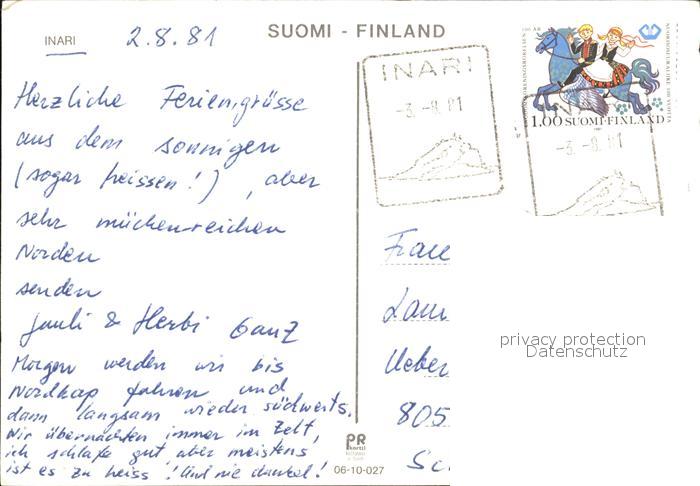 INARI 2.8.81 SUOMI - FINLAND
INARI
-3.-8.81
1.00 SUOMI-FINLAND
-3.-8.81
Herzliche Feriengrüsse
aus dem sonnigen
(sogar heissen!), aber
sehr mückenreichen
Norden
senden
Jauli & Herbi Ganz
Morgen werden wir bis
Nordkap fahren und
dann langsam wieder südwärts.
Wir übernachten immer im Zelt,
ich schlafe gut aber meistens
ist es zu heiss! Und nie dunkel!
Frau
Ueber
805
Sc
privacy protection
Datenschutz
PR
06-10-027